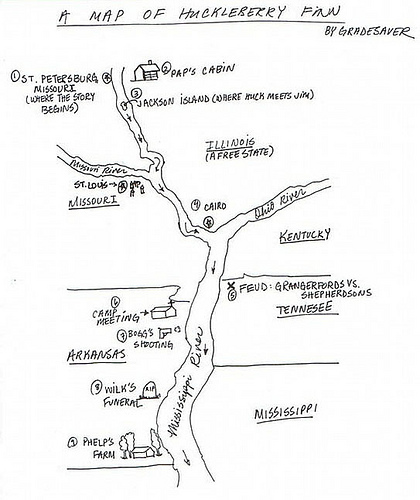 A MAP OF HUCKLEBERRY FINN
BY GRADESAVER
① ST. PETERSBURG
MISSOURI
(WHERE THE STORY
BEGINS)
② PAP'S CABIN
③ JACKSON ISLAND (WHERE HUCK MEETS JIM)
ILLINOIS
(A FREE STATE)
Missouri River
ST. LOUIS
MISSOURI
④ CAIRO
Ohio River
KENTUCKY
⑤ FEUD: GRANGERFORDS VS.
SHEPHERDSONS
TENNESEE
⑥
CAMP
MEETING
⑦ BOGG'S
SHOOTING
ARKANSAS
Mississippi River
⑧ WILK'S
FUNERAL
RIP
MISSISSIPPI
⑨ PHELP'S
FARM